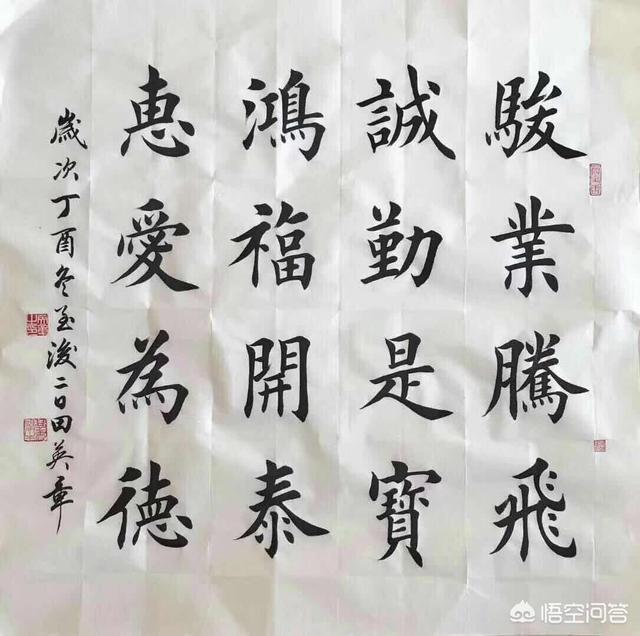 駿業騰飛
誠勤是寶
鴻福開泰
惠愛為德
歲次丁酉冬至後二日田英章
悟空问答